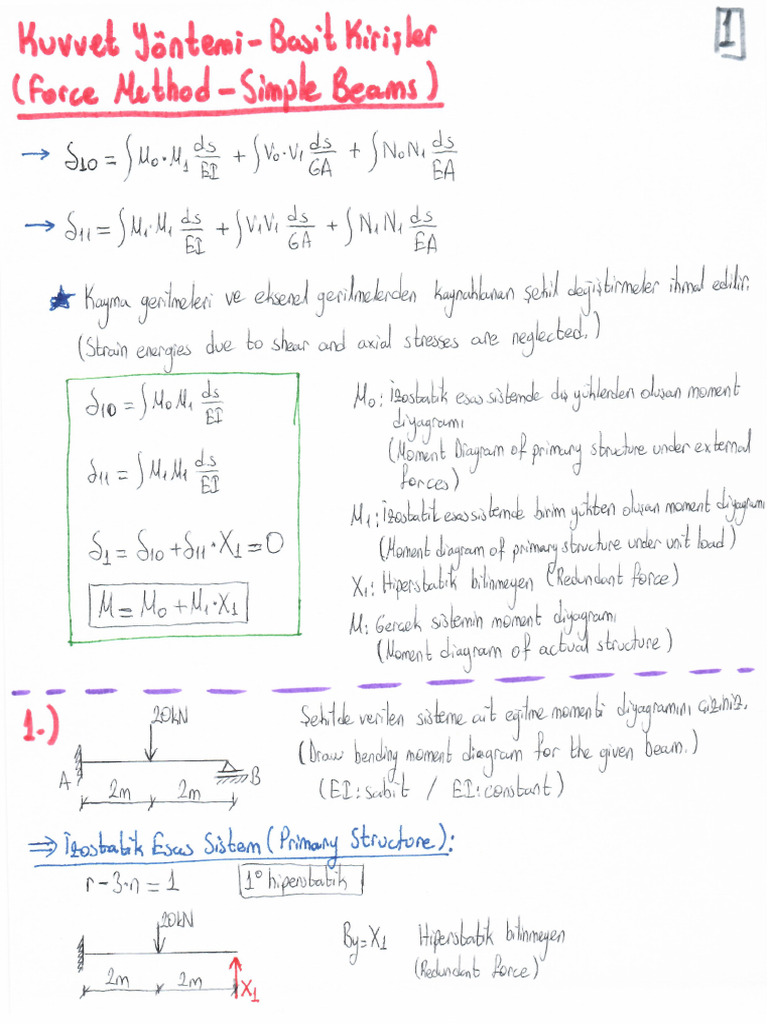 Kuvvet Yöntemi - Basit Kirişler
1
(Force Method - Simple Beams)
→ δ10 = ∫M0·M1 ds/EI + ∫V0·V1 ds/GA + ∫N0N1 ds/EA
→ δ11 = ∫M1·M1 ds/EI + ∫V1V1 ds/GA + ∫N1N1 ds/EA
★ Kayma gerilmeleri ve eksenel gerilmelerden kaynaklanan şekil değiştirmeler ihmal edilir.
(Strain energies due to shear and axial stresses are neglected.)
δ10 = ∫M0M1 ds/EI
δ11 = ∫M1M1 ds/EI
δ1 = δ10 + δ11·X1 = 0
M = M0 + M1·X1
M0: İzostatik esas sistemde dış yüklerden oluşan moment
diyagramı
(Moment Diagram of primary structure under external
forces)
M1: İzostatik esas sistemde birim yükten oluşan moment diyagramı
(Moment diagram of primary structure under unit load)
X1: Hiperstatik bilinmeyen (Redundant force)
M: Gerçek sistemin moment diyagramı
(Moment diagram of actual structure)
1.)
20kN
A
B
2m
2m
Şekilde verilen sisteme ait eğilme momenti diyagramını çiziniz.
(Draw bending moment diagram for the given beam.)
(EI: sabit / EI: constant)
⇒ İzostatik Esas Sistem (Primary Structure):
r-3·n = 1
1° hiperstatik
20kN
2m
2m
X1
By = X1 Hiperstatik bilinmeyen
(Redundant force)